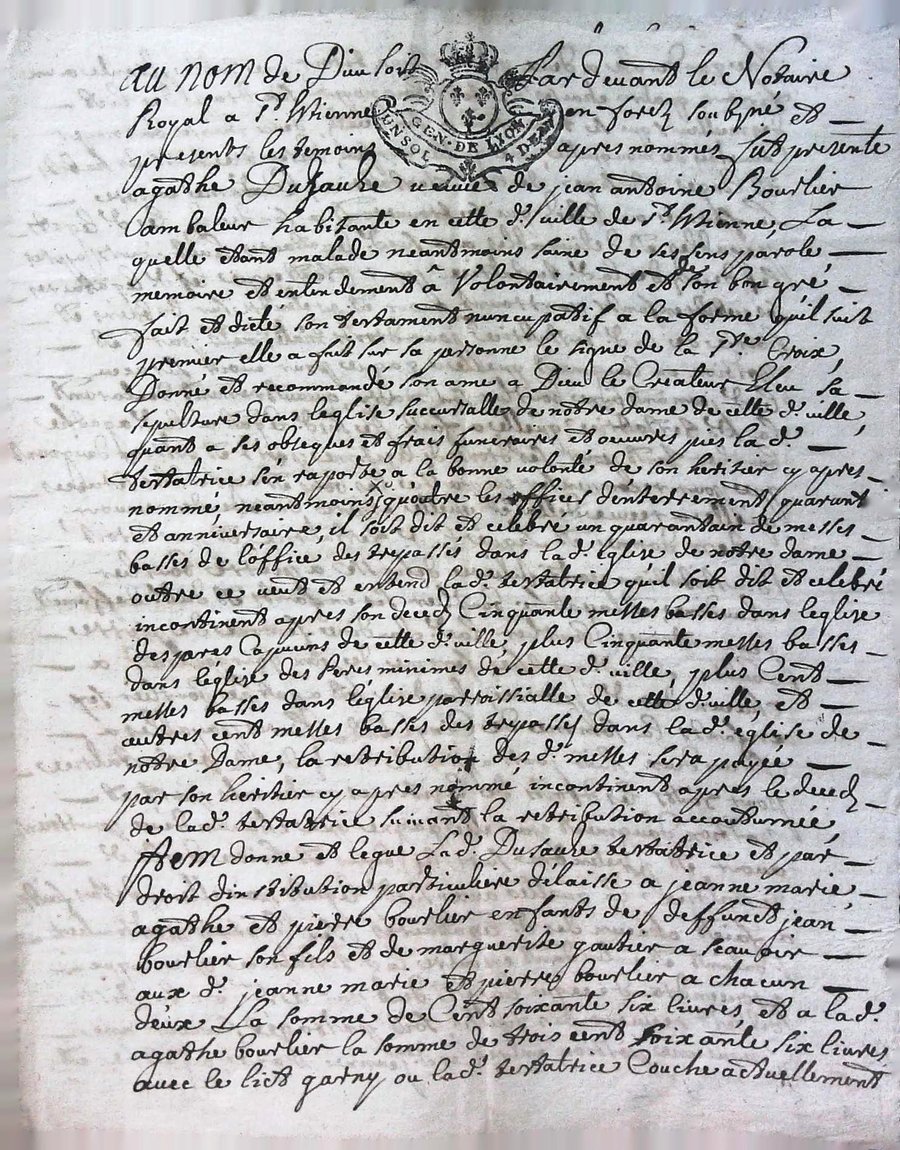 Au nom de Dieu soit Par devant le Notaire
Royal a St. Etienne en forez soubsné et
presents les temoins apres nommés fut presente
GEN. DE LYON
UN SOL 4 DE
agathe Dusauze veuve de jean antoine Bourlier
ambaleur habitante en cette d. ville de St. Etienne, La
quelle etant malade neantmoins saine de ses sens parole
memoire et entendement a Volontairement et de son bon gré
fait et dicté son testament nuncupatif a la forme qu'il suit
premier elle a fait sur sa personne le signe de la Ste. Croix,
Donné et recommandé son ame a Dieu le Createur Eleu sa
sepulture dans leglise succursalle de notre dame de cette d. ville,
quant a ses obseques et frais funeraires et oeuvres pies la d.
testatrice s'en raporte a la bonne volonté de son heritier cy apres
nommé, neantmoins qu'outre les offices d'enterrement quarant
et anniversaire, il soit dit et celebré un quarantain de messes
basses de l'office des trepassés dans la d. Eglise de notre dame
outre ce veut et entend la d. testatrice qu'il soit dit et celebré
incontinent apres son decedz Cinquante messes basses dans leglise
des peres Capucins de cette d. ville, plus Cinquante messes basses
dans l'eglise des Peres minimes de cette d. ville, plus Cent
messes basses dans l'eglise parroissialle de cette d. ville, et
autres cent messes basses des trepassez dans la d. eglise de
notre Dame, la retribution des d. messes sera payée
par son heritier cy apres nommé incontinent apres le decedz
de la d. testatrice suivant la retribution accoutumée,
Item donne et legue La d. Dusauze testatrice et par
droit d'institution particuliere delaisse a jeanne marie
agathe et pierre bourlier enfants de deffunct jean
bourlier son fils et de marguerite gautier a scavoir
aux d. jeanne marie et pierre bourlier a chacun
deux La somme de Cent soixante six livres, et a la d.
agathe bourlier la somme de trois cent soixante six livres
avec le lict garny ou la d. testatrice Couche actuellement